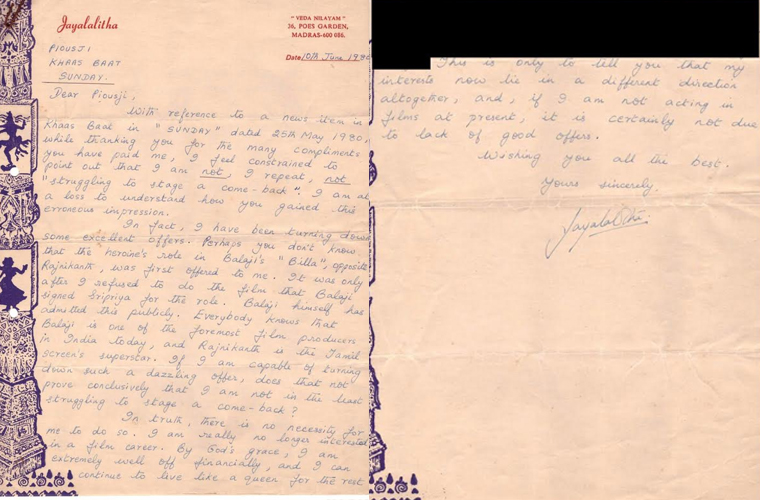 Jayalalitha
" VEDA NILAYAM "
36, POES GARDEN,
MADRAS-600 086.
Date 10th June 1980
PIOUSJI
KHAAS BAAT
SUNDAY.
Dear Piousji,
With reference to a news item in
Khaas Baat in "SUNDAY" dated 25th May 1980,
while thanking you for the many compliments
you have paid me, I feel constrained to
point out that I am not, I repeat, not
"struggling to stage a come-back". I am at
a loss to understand how you gained this
erroneous impression.
In fact, I have been turning down
some excellent offers. Perhaps you don't know
that the heroine's role in Balaji's "Billa", opposite
Rajnikanth, was first offered to me. It was only
after I refused to do the film that Balaji
signed Sripriya for the role. Balaji himself has
admitted this publicly. Everybody knows that
Balaji is one of the foremost film producers
in India today, and Rajnikanth is the Tamil
screen's superstar. If I am capable of turning
down such a dazzling offer, does that not
prove conclusively that I am not in the least
struggling to stage a come-back?
In truth, there is no necessity for
me to do so. I am really no longer interested
in a film career. By God's grace, I am
extremely well off financially, and I can
continue to live like a queen for the rest
This is only to tell you that my
interests now lie in a different direction
altogether, and, if I am not acting in
films at present, it is certainly not due
to lack of good offers.
Wishing you all the best.
Yours sincerely.
Jayalalitha.